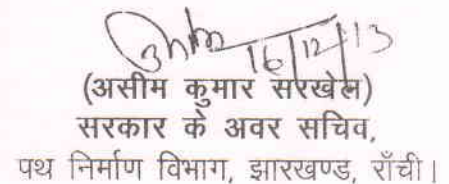 16/12/13
(असीम कुमार सरखेल)
सरकार के अवर सचिव,
पथ निर्माण विभाग, झारखण्ड, राँची।